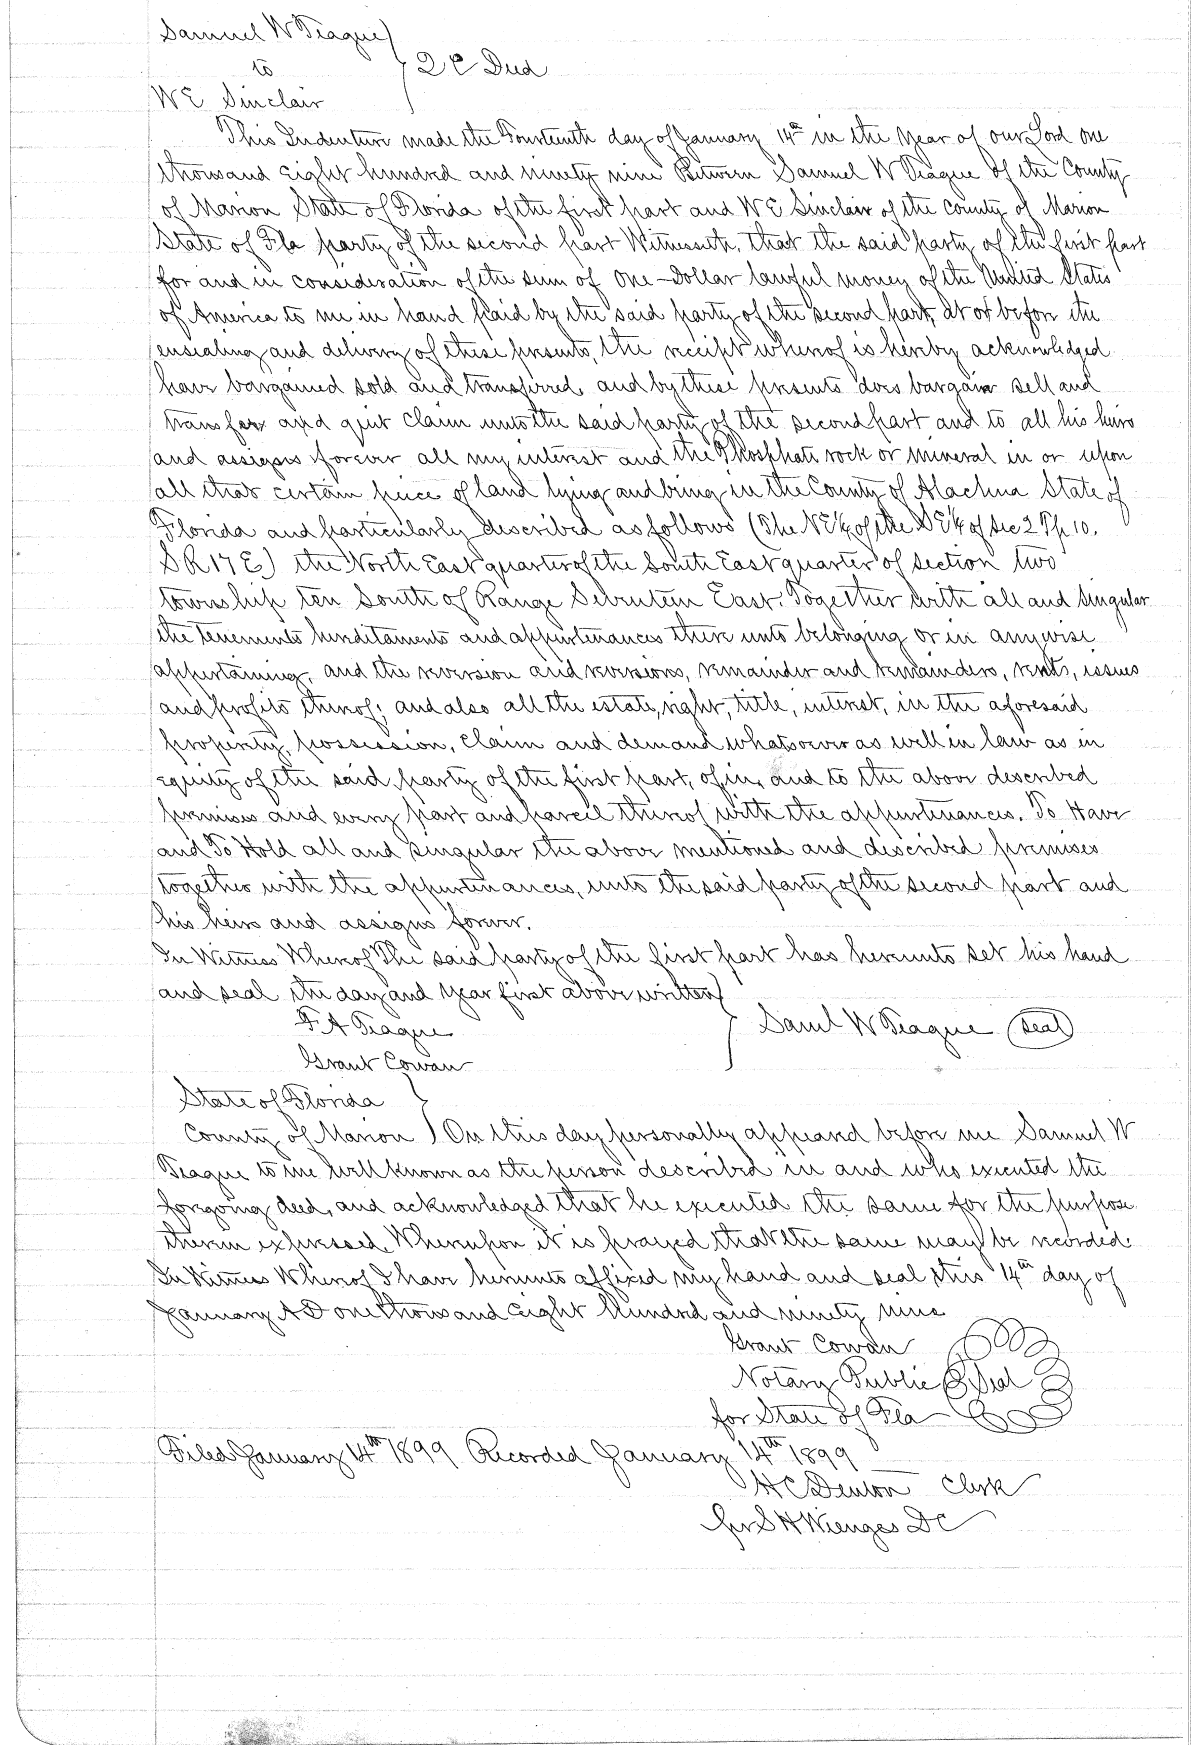 Samuel W Teague
to } Q C Deed
W E Sinclair
This Indenture made the Fourteenth day of January 14th in the Year of our Lord one
thousand eight hundred and ninety nine Between Samuel W Teague of the County
of Marion State of Florida of the first part and W E Sinclair of the County of Marion
State of Fla party of the second part Witnesseth, that the said party of the first part
for and in consideration of the sum of One-Dollar lawful money of the United States
of America to me in hand paid by the said party of the second part, at or before the
ensealing and delivery of these presents, the receipt whereof is hereby acknowledged
have bargained sold and transferred, and by these presents does bargain sell and
transfer and quit claim unto the said party of the second part and to all his heirs
and assigns forever all my interest and the Phosphate rock or mineral in or upon
all that certain peice of land lying and being in the County of Alachua State of
Florida and particularly described as follows (The NE¼ of the SE¼ of Sec 2 Tp 10.
S R 17 E) the North East quarter of the South East quarter of section two
township ten South of Range Seventeen East. Together with all and singular
the tenements hereditaments and appurtenances there unto belonging or in anywise
appertaining, and the reversion and reversions, remainder and remainders, rents, issues
and profits thereof; and also all the estate, right, title, interest, in the aforesaid
property, possession, claim and demand whatsoever as well in law as in
equity of the said party of the first part, of in, and to the above described
premises and every part and parcel thereof with the appurtenances. To Have
and To Hold all and singular the above mentioned and described premises
together with the appurtenances, unto the said party of the second part and
his heirs and assigns forever.
In Witness Whereof The said party of the first part has hereunto set his hand
and seal the day and year first above written
F A Teague } Saml W Teague (Seal)
Grant Cowan
State of Florida
County of Marion } On this day personally appeared before me Samuel W
Teague to me well known as the person described in and who executed the
forgoing deed, and acknowledged that he executed the same for the purpose
therein expressed. Whereupon it is prayed that the same may be recorded.
In Witness Whereof I have hereunto affixed my hand and seal this 14th day of
January A D one thousand eight hundred and ninety nine
Grant Cowan
Notary Public Seal
for State of Fla
Filed January 14th 1899 Recorded January 14th 1899
H C Denton Clerk
per S H Wienges D C